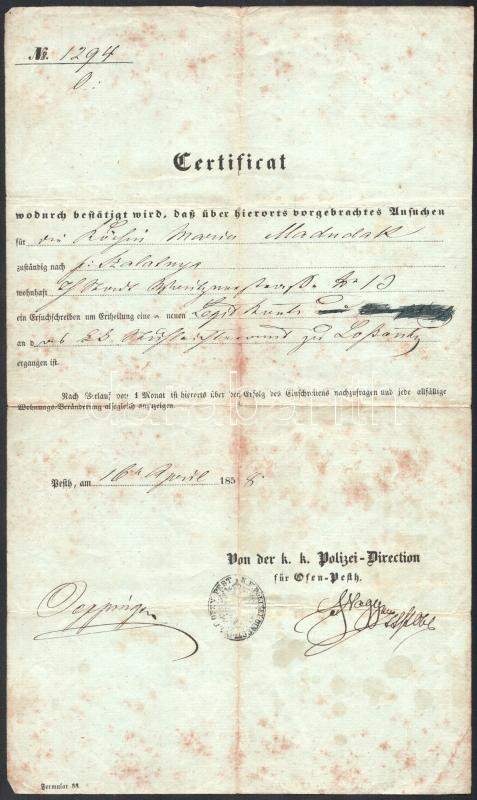 №. 1294
Certificat
wodurch bestätigt wird, daß über hierorts vorgebrachtes Ansuchen
für die Köchin Maria Madudak
zuständig nach Szalatnya
wohnhaft Stadt Waitznerstraße № 13
ein Ersuchschreiben um Ertheilung eine neuen
an das k k Stuhlrichteramt zu Loßontz
ergangen ist.
Nach Verlauf von 1 Monat ist hierorts über den Erfolg des Einschreitens nachzufragen und jede allfällige
Wohnungs-Veränderung allsogleich anzuzeigen.
Pesth, am 16ten April 1858
Von der k. k. Polizei-Direction
für Ofen-Pesth.
Formular
darabanth